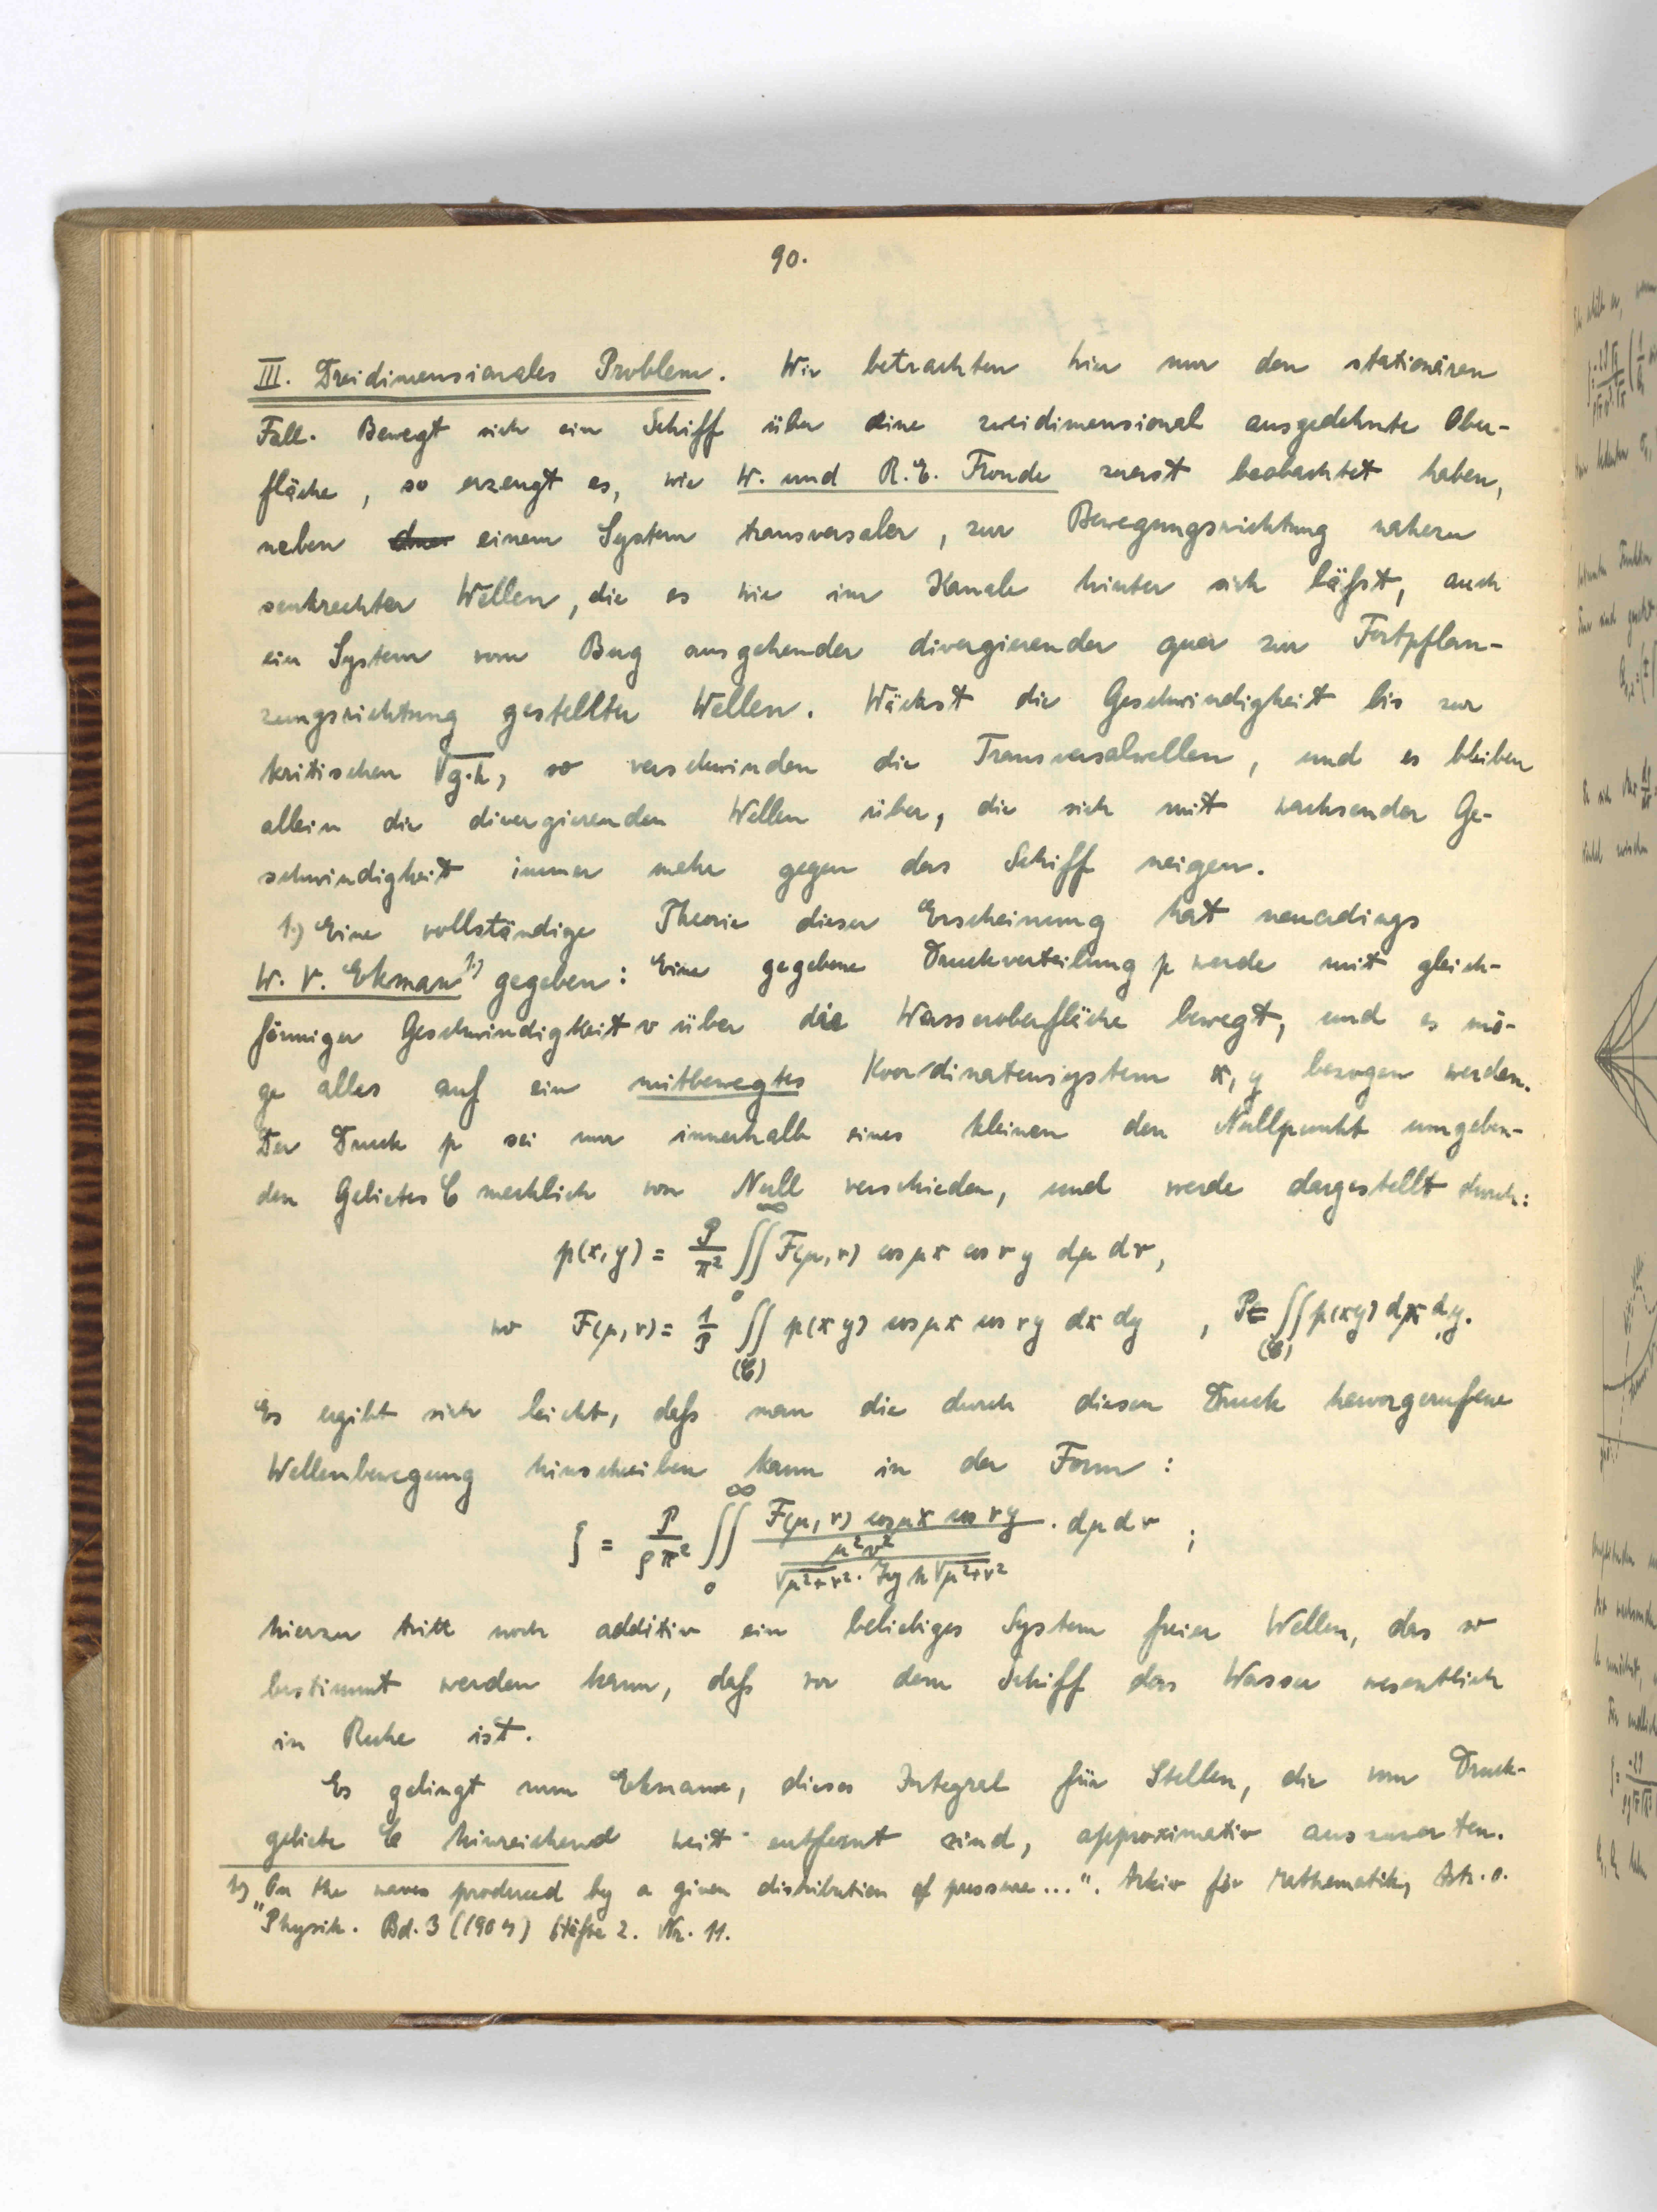 90.
III. Dreidimensionales Problem. Wir betrachten hier nur den stationären
Fall. Bewegt sich ein Schiff über eine zweidimensional ausgedehnte Ober-
fläche, so erzeugt es, wie W. und R. E. Froude zuerst beobachtet haben,
neben einem System transversaler, zur Bewegungsrichtung nahezu
senkrechter Wellen, die es wie im Kanale hinter sich läßt, auch
ein System vom Bug ausgehender divergierender quer zur Fortpflan-
zungsrichtung gestellter Wellen. Wächst die Geschwindigkeit bis zur
kritischen √g·h, so verschwinden die Transversalwellen, und es bleiben
allein die divergierenden Wellen über, die sich mit wachsender Ge-
schwindigkeit immer mehr gegen das Schiff neigen.
1.) Eine vollständige Theorie dieser Erscheinung hat neuerdings
W. V. Ekman 1.) gegeben: Eine gegebene Druckverteilung p werde mit gleich-
förmiger Geschwindigkeit v über die Wasseroberfläche bewegt, und es mö-
ge alles auf ein mitbewegtes Koordinatensystem x, y bezogen werden.
Der Druck p sei nur innerhalb eines kleinen den Nullpunkt umgeben-
den Gebietes C merklich von Null verschieden, und werde dargestellt durch:
p(x,y) = P/π² ∬₀^∞ F(μ,ν) cos μx cos νy dμ dν,
wo F(μ,ν) = 1/P ∬_(C) p(xy) cos μx cos νy dx dy , P = ∬_(C) p(xy) dx dy.
Es ergibt sich leicht, daß man die durch diesen Druck hervorgerufene
Wellenbewegung hinschreiben kann in der Form:
ζ = P/ρπ² ∬₀^∞ F(μ,ν) cos μx cos νy / (μ²v² / √μ²+ν² · Tg h √μ²+ν²) · dμ dν ;
hierzu tritt noch additiv ein beliebiges System freier Wellen, das so
bestimmt werden kann, daß vor dem Schiff das Wasser wesentlich
in Ruhe ist.
Es gelingt nun Ekman, dieses Integral für Stellen, die vom Druck-
gebiete C hinreichend weit entfernt sind, approximativ auszuwerten.
1.) „On the waves produced by a given distribution of pressure ...". Arkiv för Mathematik, Astr. o.
Physik. Bd. 3 Häfte 2. Nr. 11.